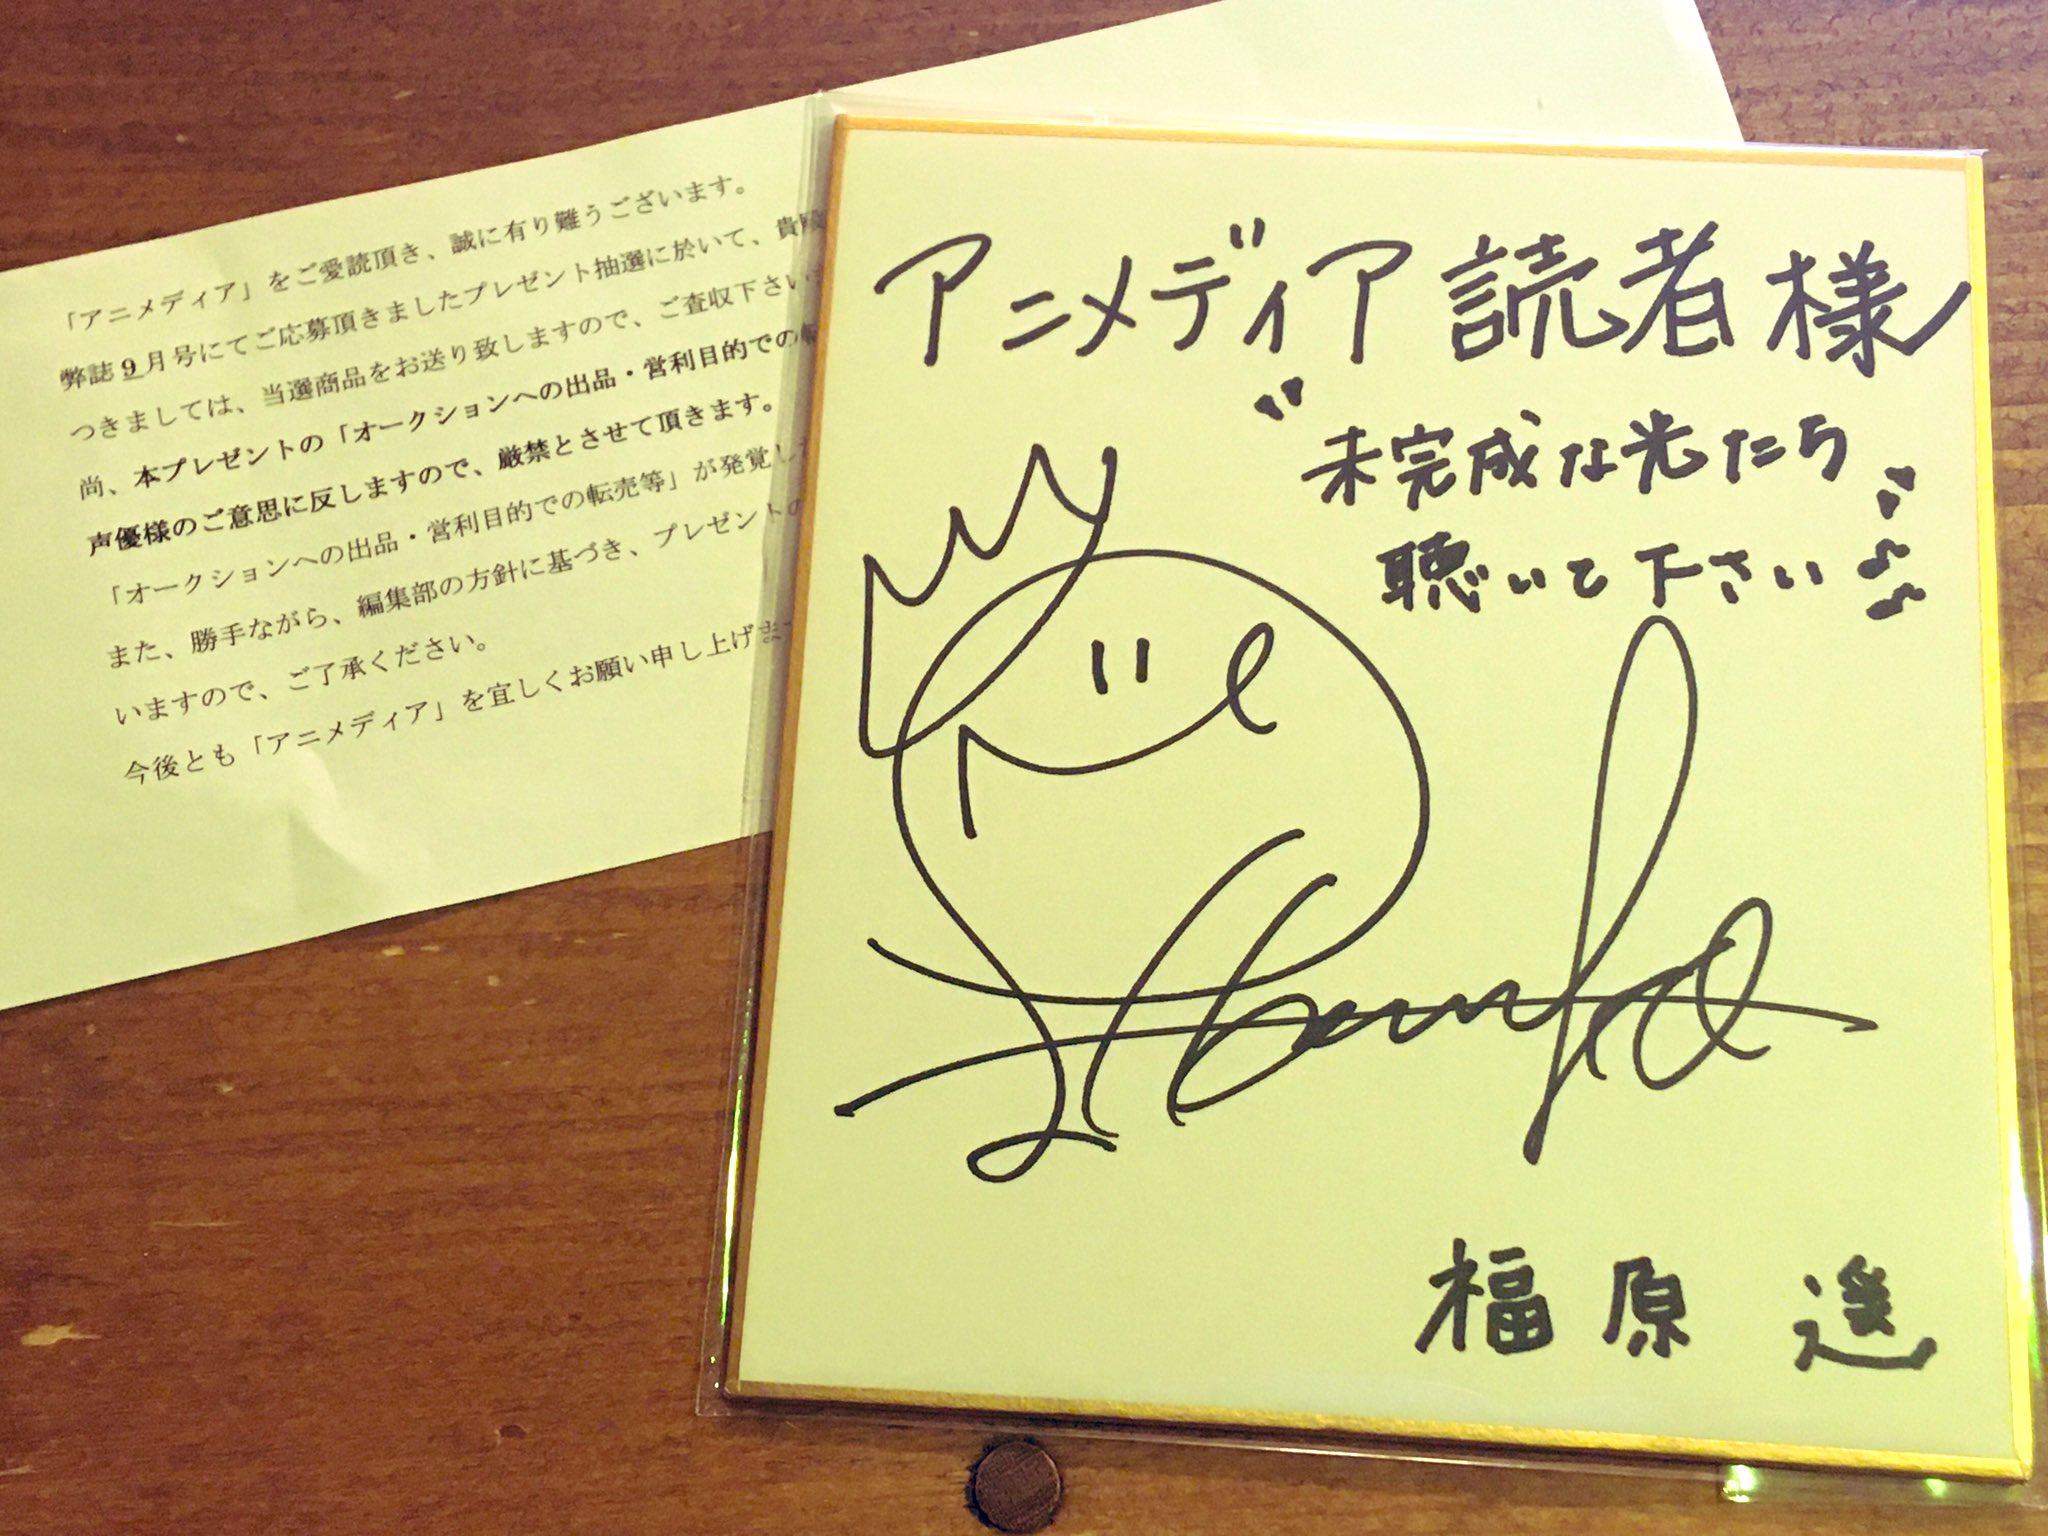 「アニメディア」をご愛読頂き、誠に有り難うございます。
弊誌9月号にてご応募頂きましたプレゼント抽選に於いて、貴殿
つきましては、当選商品をお送り致しますので、ご査収下さい
尚、本プレゼントの「オークションへの出品・営利目的での転
声優様のご意思に反しますので、厳禁とさせて頂きます。
「オークションへの出品・営利目的での転売等」が発覚し
また、勝手ながら、編集部の方針に基づき、プレゼントの
いますので、ご了承ください。
今後とも「アニメディア」を宜しくお願い申し上げま
アニメディア読者様
"未完成な光たち"
聴いて下さい♪
福原 遥